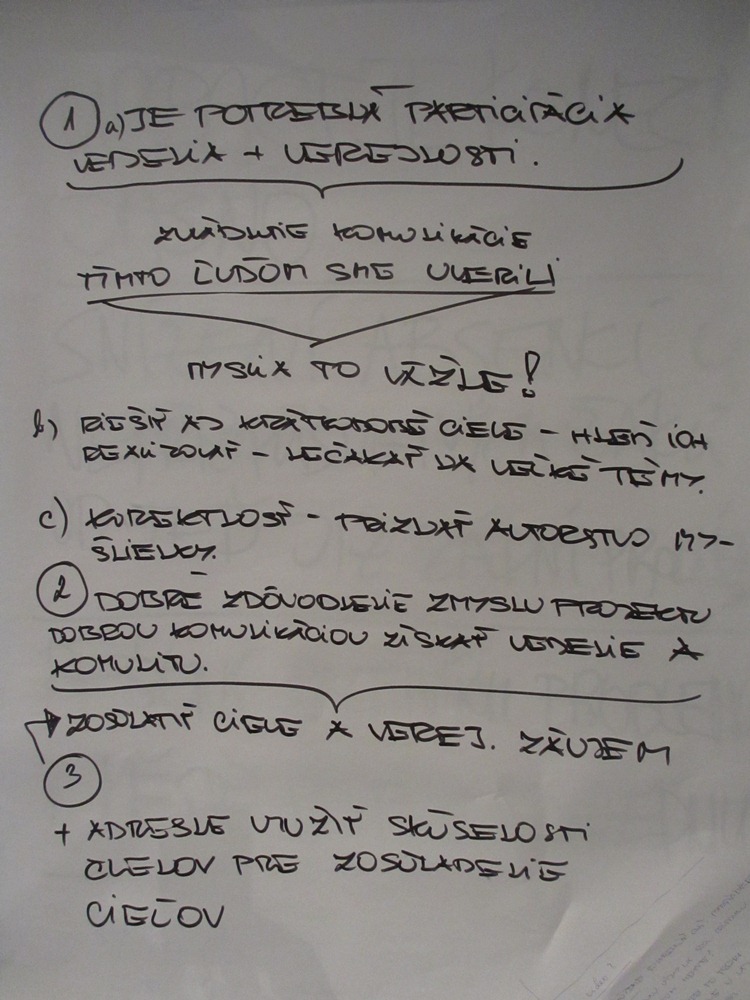 1 a) JE POTREBNÁ PARTICIPÁCIA
VEDENIA + VEREJNOSTI.
ZVLÁDNUTIE KOMUNIKÁCIE
TÝMTO ĽUĎOM SME UVERILI
MYSLIA TO VÁŽNE!
b) RIEŠIŤ AJ KRÁTKODOBÉ CIELE - HNEĎ ICH
REALIZOVAŤ - NEČAKAŤ NA VEĽKÉ TÉMY.
c) KOREKTNOSŤ - PRIZNAŤ AUTORSTVO MY-
ŠLIENKY.
2 DOBRÉ ZDÔVODNENIE ZMYSLU PROJEKTU
DOBROU KOMUNIKÁCIOU ZÍSKAŤ VEDENIE A
KOMUNITU.
ZOSÚLADIŤ CIELE A VEREJ. ZÁUJEM
3
+ ADRESNE VYUŽIŤ SKÚSENOSTI
ČLENOV PRE ZOSÚLADENIE
CIEĽOV